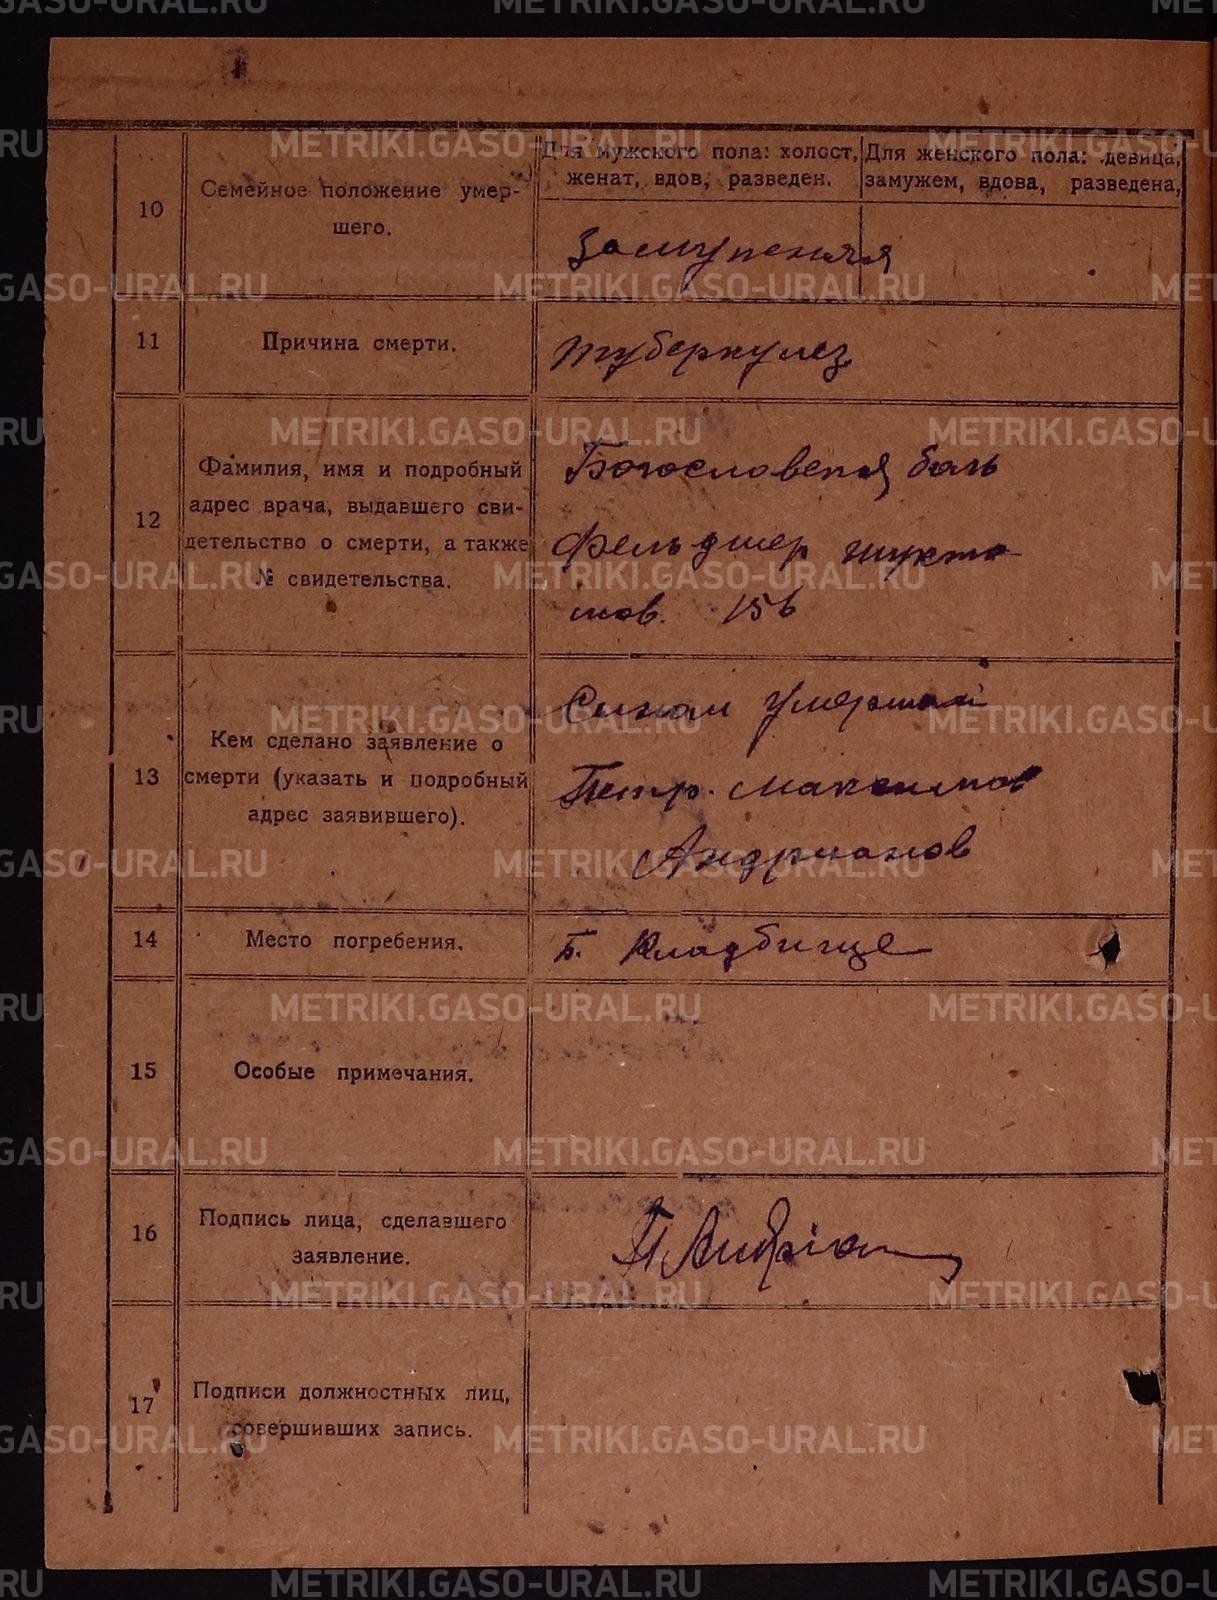 10
Семейное положение умер-
шего.
Для мужского пола: холост,
женат, вдов, разведен.
Для женского пола: девица,
замужем, вдова, разведена,
Замуженяя
11
Причина смерти.
туберкулез
12
Фамилия, имя и подробный
адрес врача, выдавшего сви-
детельство о смерти, а также
№ свидетельства.
Богословская боль
Фельдшер
156
13
Кем сделано заявление о
смерти (указать и подробный
адрес заявившего).
Сыном умершай
Петр. Максимов
Андрианов
14
Место погребения.
Б. Кладбище
15
Особые примечания.
16
Подпись лица, сделавшего
заявление.
П Андриа
17
Подписи должностных лиц,
совершивших запись.
METRIKI.GASO-URAL.RU